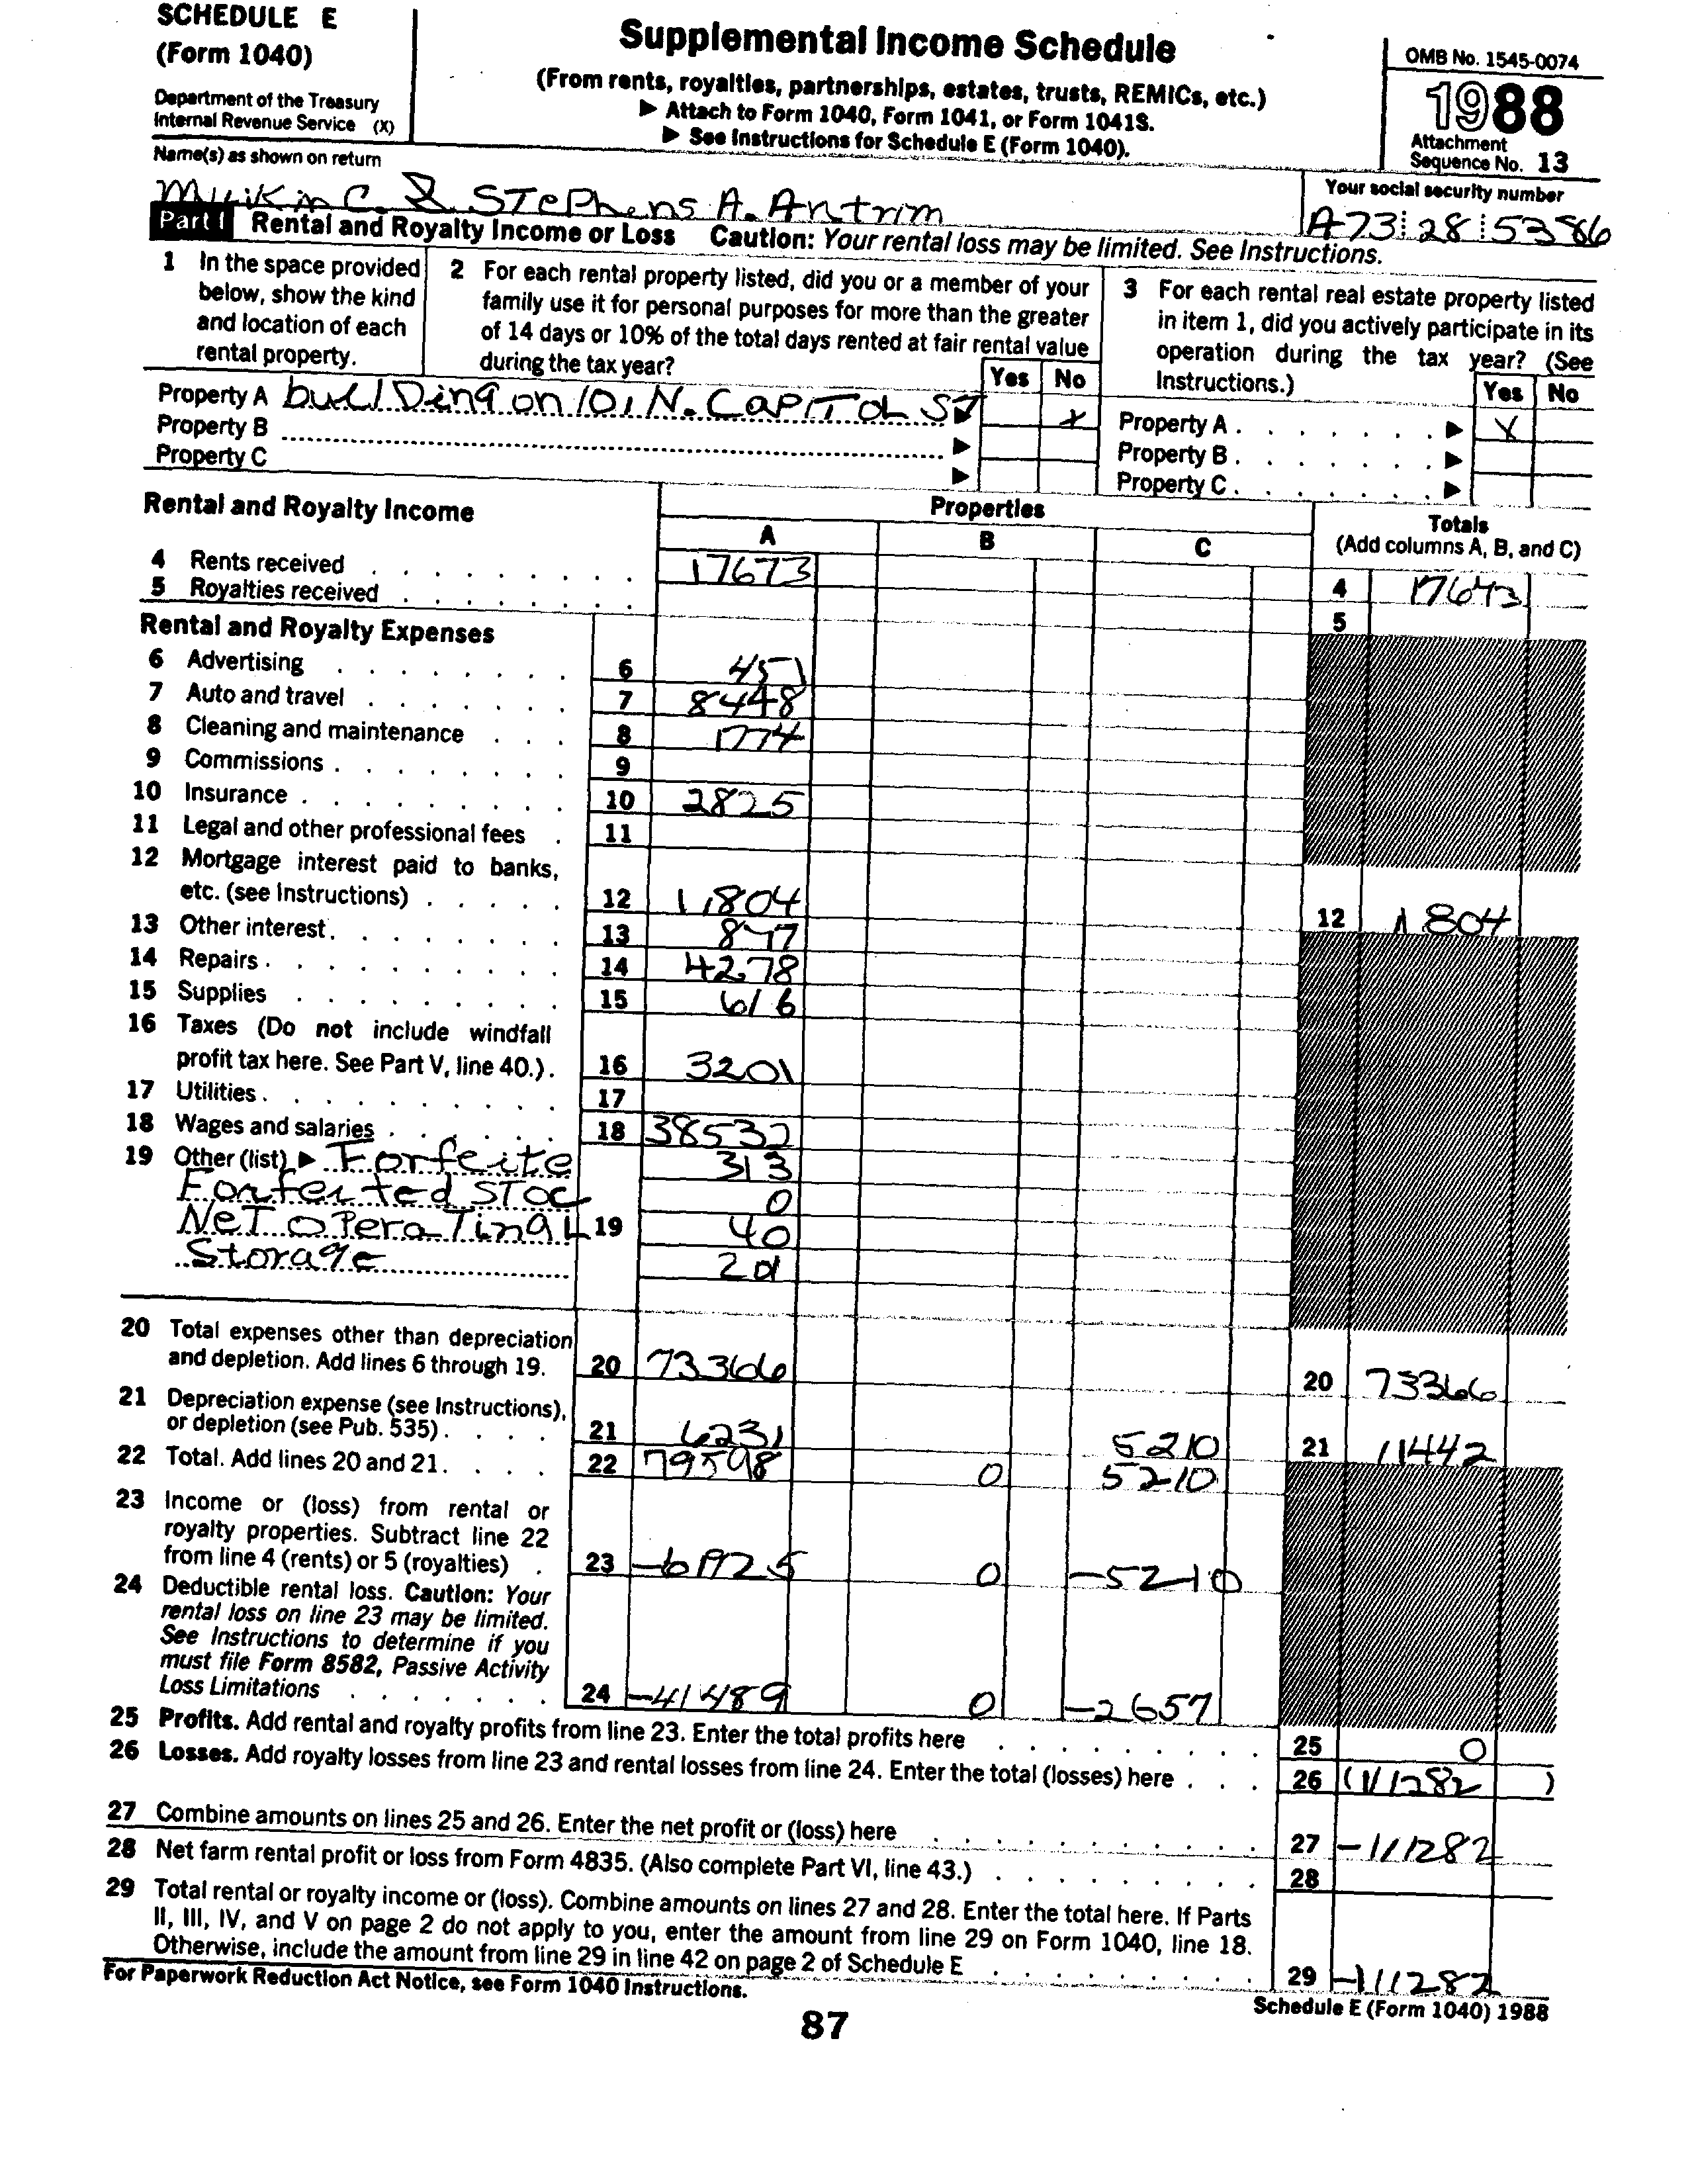 SCHEDULE E
(Form 1040)
Department of the Treasury
Internal Revenue Service (X)
Supplemental Income Schedule
(From rents, royalties, partnerships, estates, trusts, REMICs, etc.)
▶ Attach to Form 1040, Form 1041, or Form 1041S.
▶ See Instructions for Schedule E (Form 1040).
OMB No. 1545-0074
1988
Attachment
Sequence No. 13
Name(s) as shown on return
C. & STephens A. Antrim
Your social security number
A73 28 5386
Part I Rental and Royalty Income or Loss Caution: Your rental loss may be limited. See Instructions.
1 In the space provided
below, show the kind
and location of each
rental property.
2 For each rental property listed, did you or a member of your
family use it for personal purposes for more than the greater
of 14 days or 10% of the total days rented at fair rental value
during the tax year?
Yes No
3 For each rental real estate property listed
in item 1, did you actively participate in its
operation during the tax year? (See
Instructions.)
Yes No
Property A builDing on 101 N. CAPITOL ST ▶ X
Property B ▶
Property C ▶
Property A ▶ X
Property B ▶
Property C ▶
Rental and Royalty Income
Properties
A B C
Totals
(Add columns A, B, and C)
4 Rents received 17673 4 17673
5 Royalties received 5
Rental and Royalty Expenses
6 Advertising 6 451
7 Auto and travel 7 8448
8 Cleaning and maintenance 8 1774
9 Commissions 9
10 Insurance 10 2825
11 Legal and other professional fees 11
12 Mortgage interest paid to banks,
etc. (see Instructions) 12 1,804 12 1804
13 Other interest 13 847
14 Repairs 14 4278
15 Supplies 15 616
16 Taxes (Do not include windfall
profit tax here. See Part V, line 40.) 16 3201
17 Utilities 17
18 Wages and salaries 18 38532
19 Other (list) ▶ Forfeite 313
Forfeited STOC 0
NeT OPeraTingL 19 40
Storage 201
20 Total expenses other than depreciation
and depletion. Add lines 6 through 19. 20 73366 20 73366
21 Depreciation expense (see Instructions),
or depletion (see Pub. 535) 21 6231 5210 21 11442
22 Total. Add lines 20 and 21 22 79598 0 5210
23 Income or (loss) from rental or
royalty properties. Subtract line 22
from line 4 (rents) or 5 (royalties) 23 -61925 0 -5210
24 Deductible rental loss. Caution: Your
rental loss on line 23 may be limited.
See Instructions to determine if you
must file Form 8582, Passive Activity
Loss Limitations 24 -41489 0 -2657
25 Profits. Add rental and royalty profits from line 23. Enter the total profits here 25 0
26 Losses. Add royalty losses from line 23 and rental losses from line 24. Enter the total (losses) here 26 (111282)
27 Combine amounts on lines 25 and 26. Enter the net profit or (loss) here 27 -111282
28 Net farm rental profit or loss from Form 4835. (Also complete Part VI, line 43.) 28
29 Total rental or royalty income or (loss). Combine amounts on lines 27 and 28. Enter the total here. If Parts
II, III, IV, and V on page 2 do not apply to you, enter the amount from line 29 on Form 1040, line 18.
Otherwise, include the amount from line 29 in line 42 on page 2 of Schedule E 29 -111282
For Paperwork Reduction Act Notice, see Form 1040 Instructions.
Schedule E (Form 1040) 1988
87